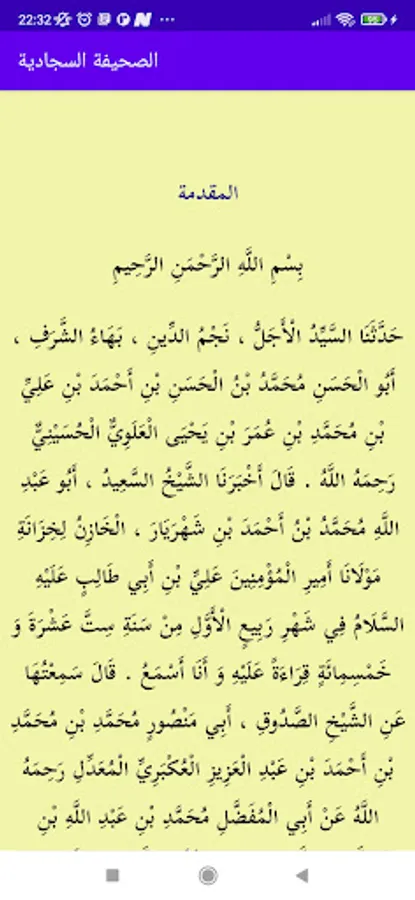 22:32
95
الصحيفة السجادية
المقدمة
بِسْمِ اللَّهِ الرَّحْمَنِ الرَّحِيمِ
حَدَّثَنَا السَّيِّدُ الْأَجَلُّ ، نَجْمُ الدِّينِ ، بَهَاءُ الشَّرَفِ ،
أَبُو الْحَسَنِ مُحَمَّدُ بْنُ الْحَسَنِ بْنِ أَحْمَدَ بْنِ عَلِيِّ
بْنِ مُحَمَّدِ بْنِ عُمَرَ بْنِ يَحْيَى الْعَلَوِيُّ الْحُسَيْنِيُّ
رَحِمَهُ اللَّهُ . قَالَ أَخْبَرَنَا الشَّيْخُ السَّعِيدُ ، أَبُو عَبْدِ
اللَّهِ مُحَمَّدُ بْنُ أَحْمَدَ بْنِ شَهْرَيَارَ ، الْخَازِنُ لِخِزَانَةِ
مَوْلَانَا أَمِيرِ الْمُؤْمِنِينَ عَلِيِّ بْنِ أَبِي طَالِبٍ عَلَيْهِ
السَّلَامُ فِي شَهْرِ رَبِيعٍ الْأَوَّلِ مِنْ سَنَةِ سِتَّ عَشْرَةَ وَ
خَمْسِمِائَةٍ قِرَاءَةً عَلَيْهِ وَ أَنَا أَسْمَعُ . قَالَ سَمِعْتُهَا
عَنِ الشَّيْخِ الصَّدُوقِ ، أَبِي مَنْصُورٍ مُحَمَّدِ بْنِ مُحَمَّدِ
بْنِ أَحْمَدَ بْنِ عَبْدِ الْعَزِيزِ الْعُكْبَرِيِّ الْمُعَدِّلِ رَحِمَهُ
اللَّهُ عَنْ أَبِي الْمُفَضَّلِ مُحَمَّدِ بْنِ عَبْدِ اللَّهِ بْنِ